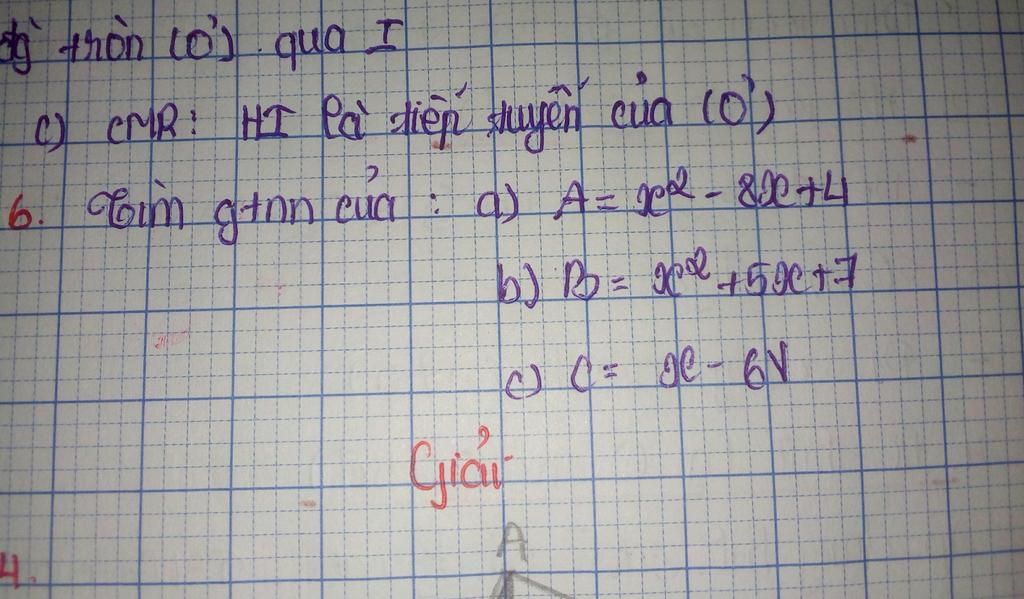 tròn (O'). qua I
c) CMR: HI là tiếp tuyến của (O')
6. Tìm gtnn của : a) A = x² - 8x + 4
b) B = x² + 5x + 7
c) C = x - 6√
Giải
A
4.